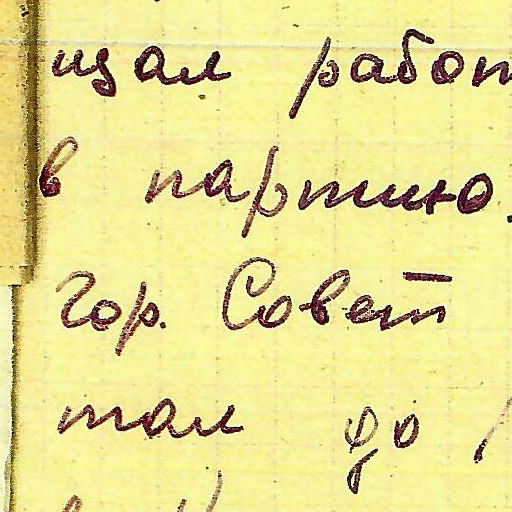 щал работ
в партию.
Гор. Совет
тал до